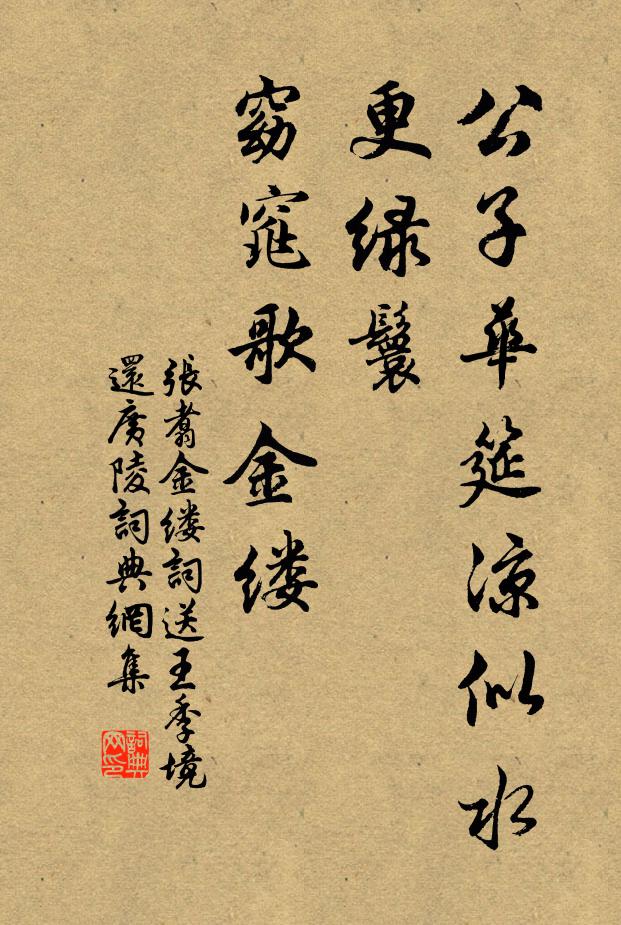 公子華筵凉似水
更緑鬟
窈窕歌金缕
張翥金缕詞送王季境
還廣陵詞典網集
詞典
网印